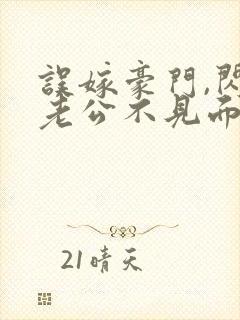 誤嫁豪門,閃
老公不見而
21晴天